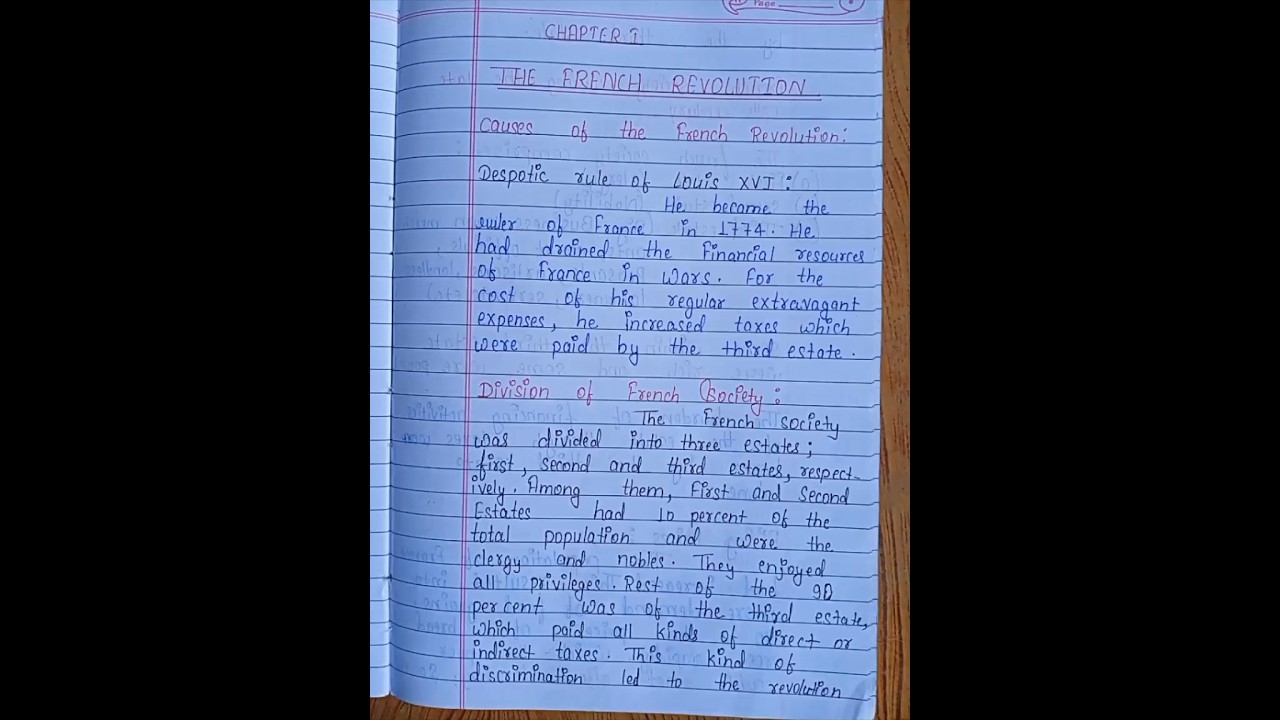 Page
CHAPTER 1
THE FRENCH REVOLUTION
Causes of the French Revolution:
Despotic rule of Louis XVI:
He became the
ruler of France in 1774. He
had drained the financial resources
of France in wars. For the
cost of his regular extravagant
expenses, he increased taxes which
were paid by the third estate.
Division of French Society:
The French society
was divided into three estates;
first, second and third estates, respect-
ively. Among them, First and Second
Estates had 10 percent of the
total population and were the
clergy and nobles. They enjoyed
all privileges. Rest of the 90
per cent was of the third estate,
which paid all kinds of direct or
indirect taxes. This kind of
discrimination led to the revolution